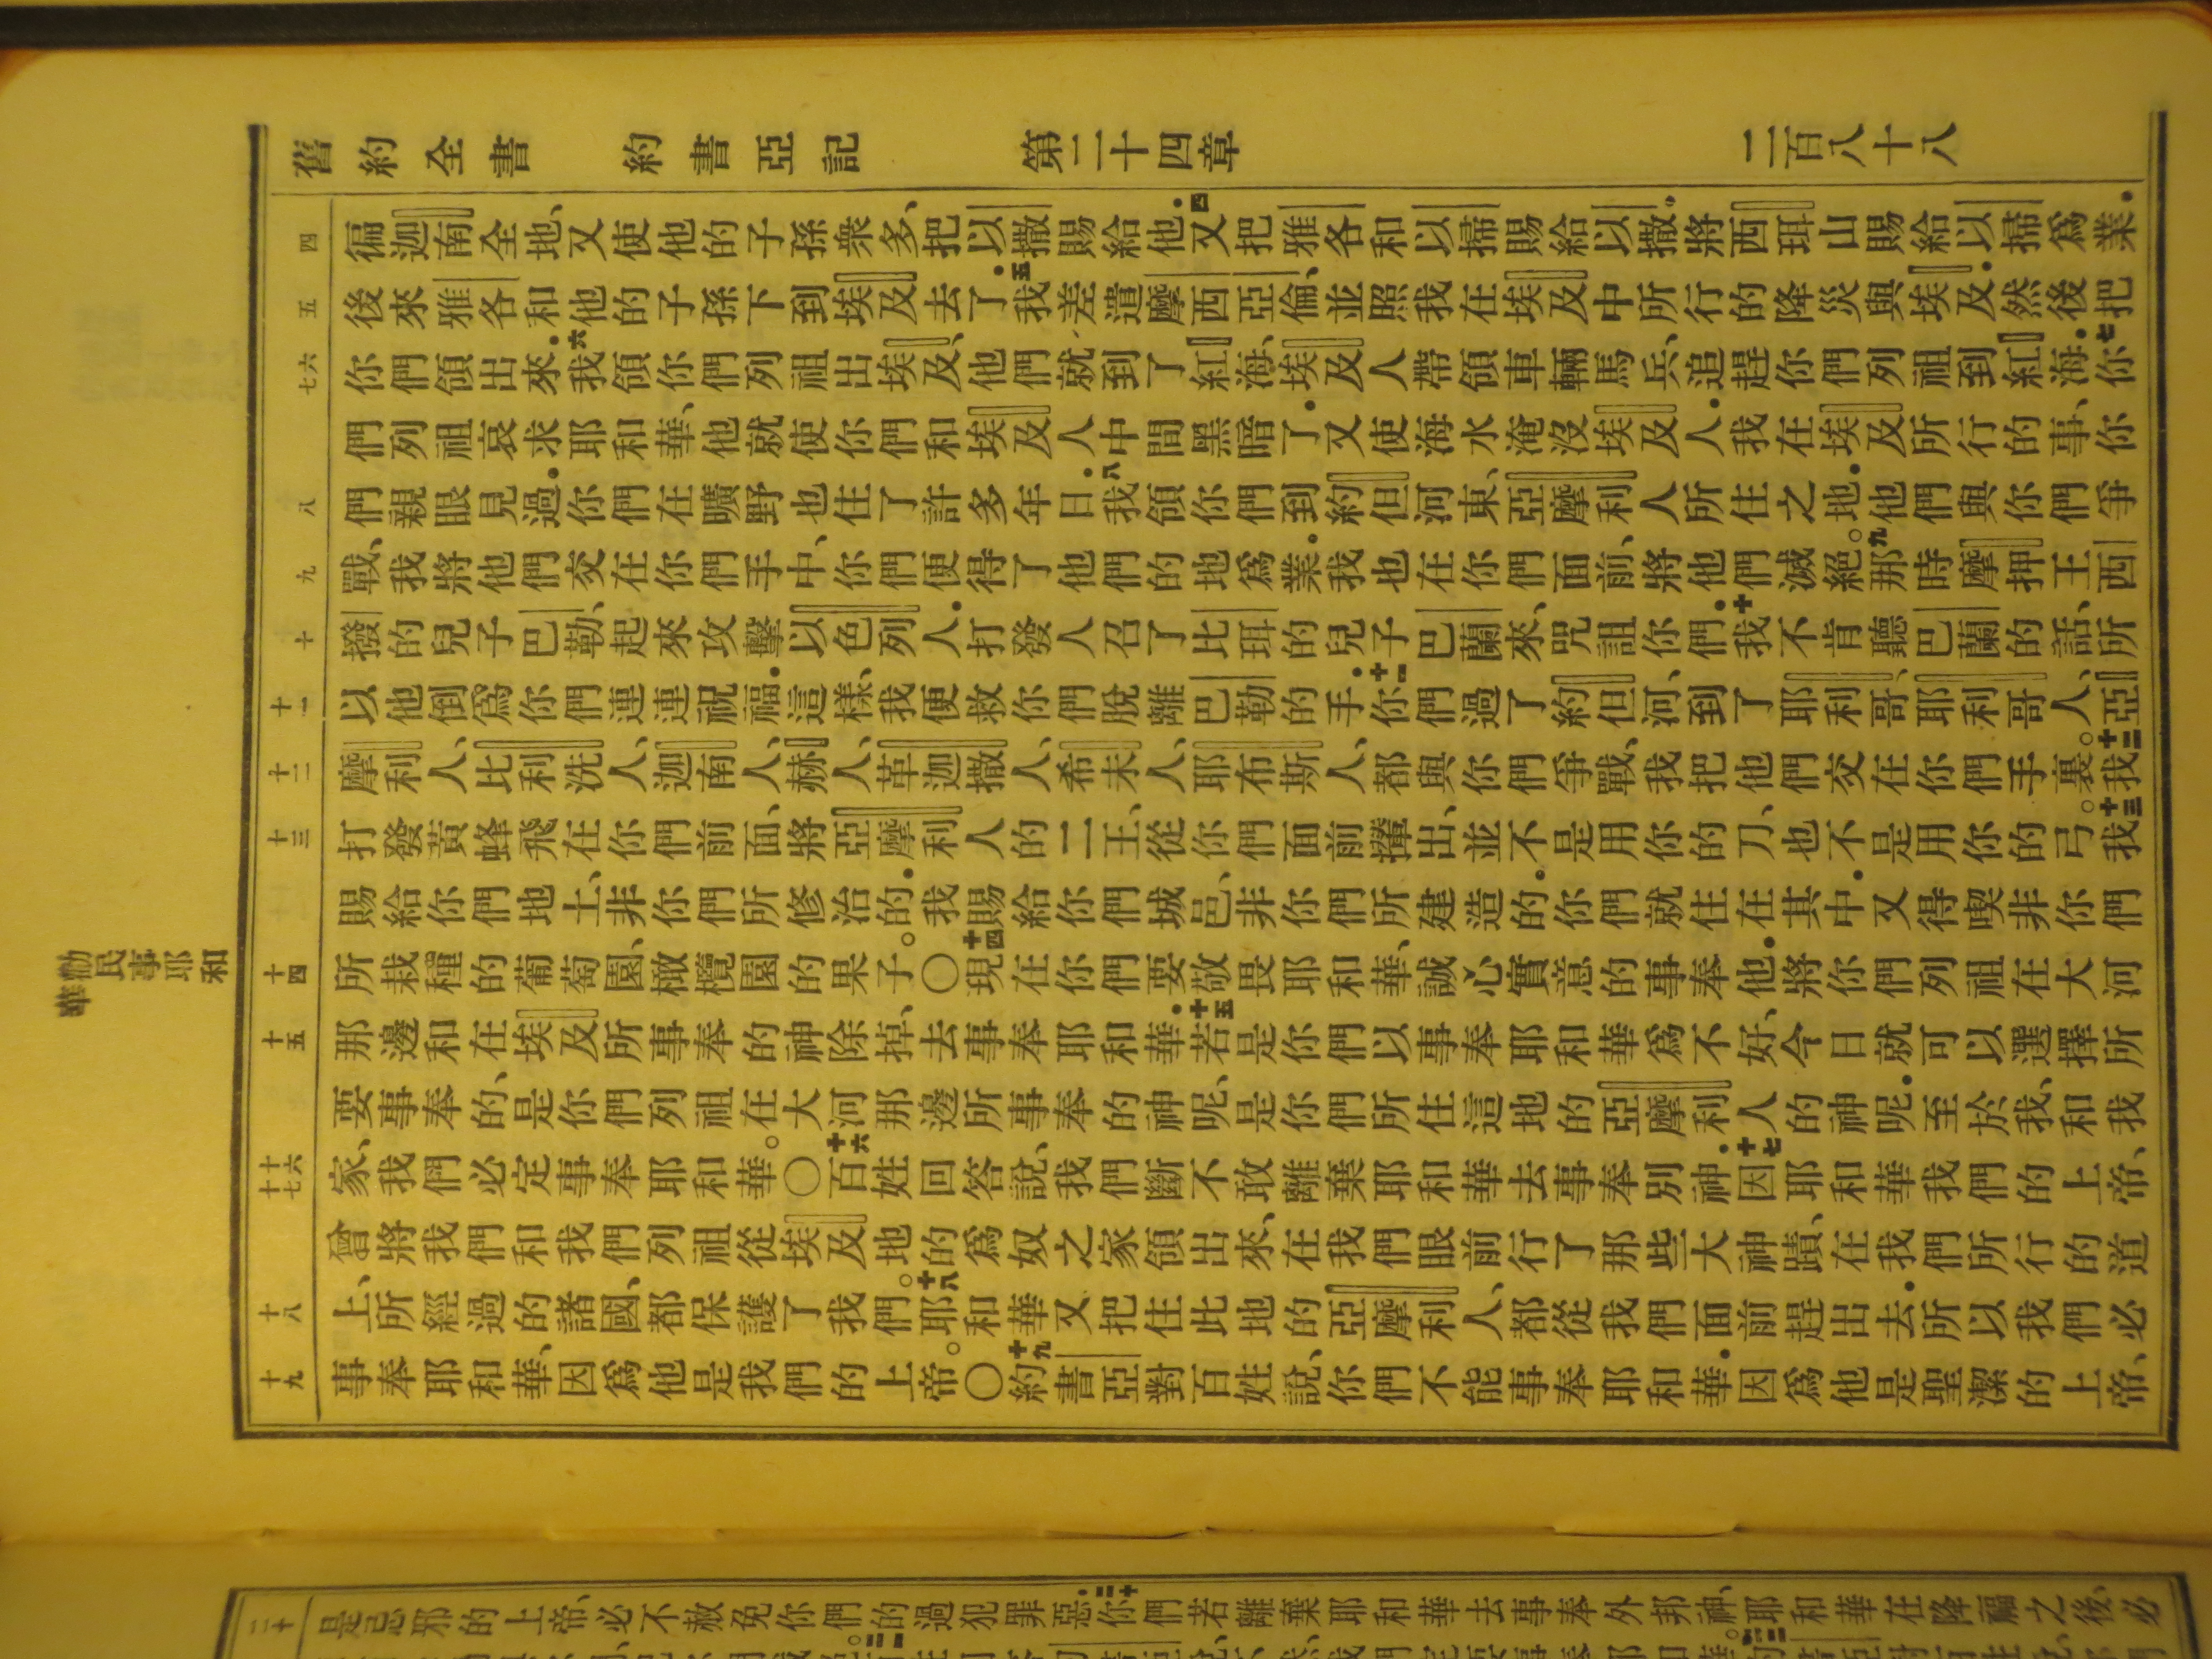 舊約全書 約書亞記 第二十四章 二百八十八
四
徧迦南全地、又使他的子孫衆多、把以撒賜給他．四又把雅各和以掃賜給以撒．將西珥山賜給以掃爲業．
五
後來雅各和他的子孫下到埃及去了．五我差遣摩西亞倫、並照我在埃及中所行的降災與埃及．然後把
六 七
你們領出來．六我領你們列祖出埃及、他們就到了紅海、埃及人帶領車輛馬兵、追趕你們列祖到紅海．七你
們列祖哀求耶和華、他就使你們和埃及人中間黑暗了．又使海水淹沒埃及人．我在埃及所行的事、你
八
們親眼見過．你們在曠野也住了許多年日．八我領你們到約但河東、亞摩利人所住之地．他們與你們爭
九
戰、我將他們交在你們手中、你們便得了他們的地爲業．我也在你們面前、將他們滅絕。九那時摩押王西
十
撥的兒子巴勒、起來攻擊以色列人．打發人召了比珥的兒子巴蘭來、咒詛你們．十我不肯聽巴蘭的話、所
十一
以他倒爲你們連連祝福．這樣、我便救你們脫離巴勒的手．十一你們過了約但河、到了耶利哥、耶利哥人、亞
十二
摩利人、比利洗人、迦南人、赫人、革迦撒人、希未人、耶布斯人、都與你們爭戰、我把他們交在你們手裏。十二我
十三
打發黃蜂飛在你們前面、將亞摩利人的二王、從你們面前攆出、並不是用你的刀、也不是用你的弓。十三我
賜給你們地土、非你們所修治的．我賜給你們城邑、非你們所建造的．你們就住在其中．又得喫非你們
十四
所栽種的葡萄園、橄欖園的果子。〇十四現在你們要敬畏耶和華、誠心實意的事奉他．將你們列祖在大河
十五
那邊和在埃及所事奉的神除掉、去事奉耶和華．十五若是你們以事奉耶和華爲不好、今日就可以選擇所
要事奉的、是你們列祖在大河那邊所事奉的神呢、是你們所住這地的亞摩利人的神呢．至於我、和我
十六 十七
家、我們必定事奉耶和華。〇十六百姓回答說、我們斷不敢離棄耶和華去事奉別神．十七因耶和華我們的上帝、
曾將我們和我們列祖從埃及地的爲奴之家領出來、在我們眼前行了那些大神蹟、在我們所行的道
十八
上、所經過的諸國、都保護了我們。十八耶和華又把住此地的亞摩利人、都從我們面前趕出去．所以我們必
十九
事奉耶和華、因爲他是我們的上帝。〇十九約書亞對百姓說、你們不能事奉耶和華．因爲他是聖潔的上帝、
勸民事耶和華
二十
是忌邪的上帝、必不赦免你們的過犯罪惡．二十你們若離棄耶和華去事奉外邦神、耶和華在降福之後、必